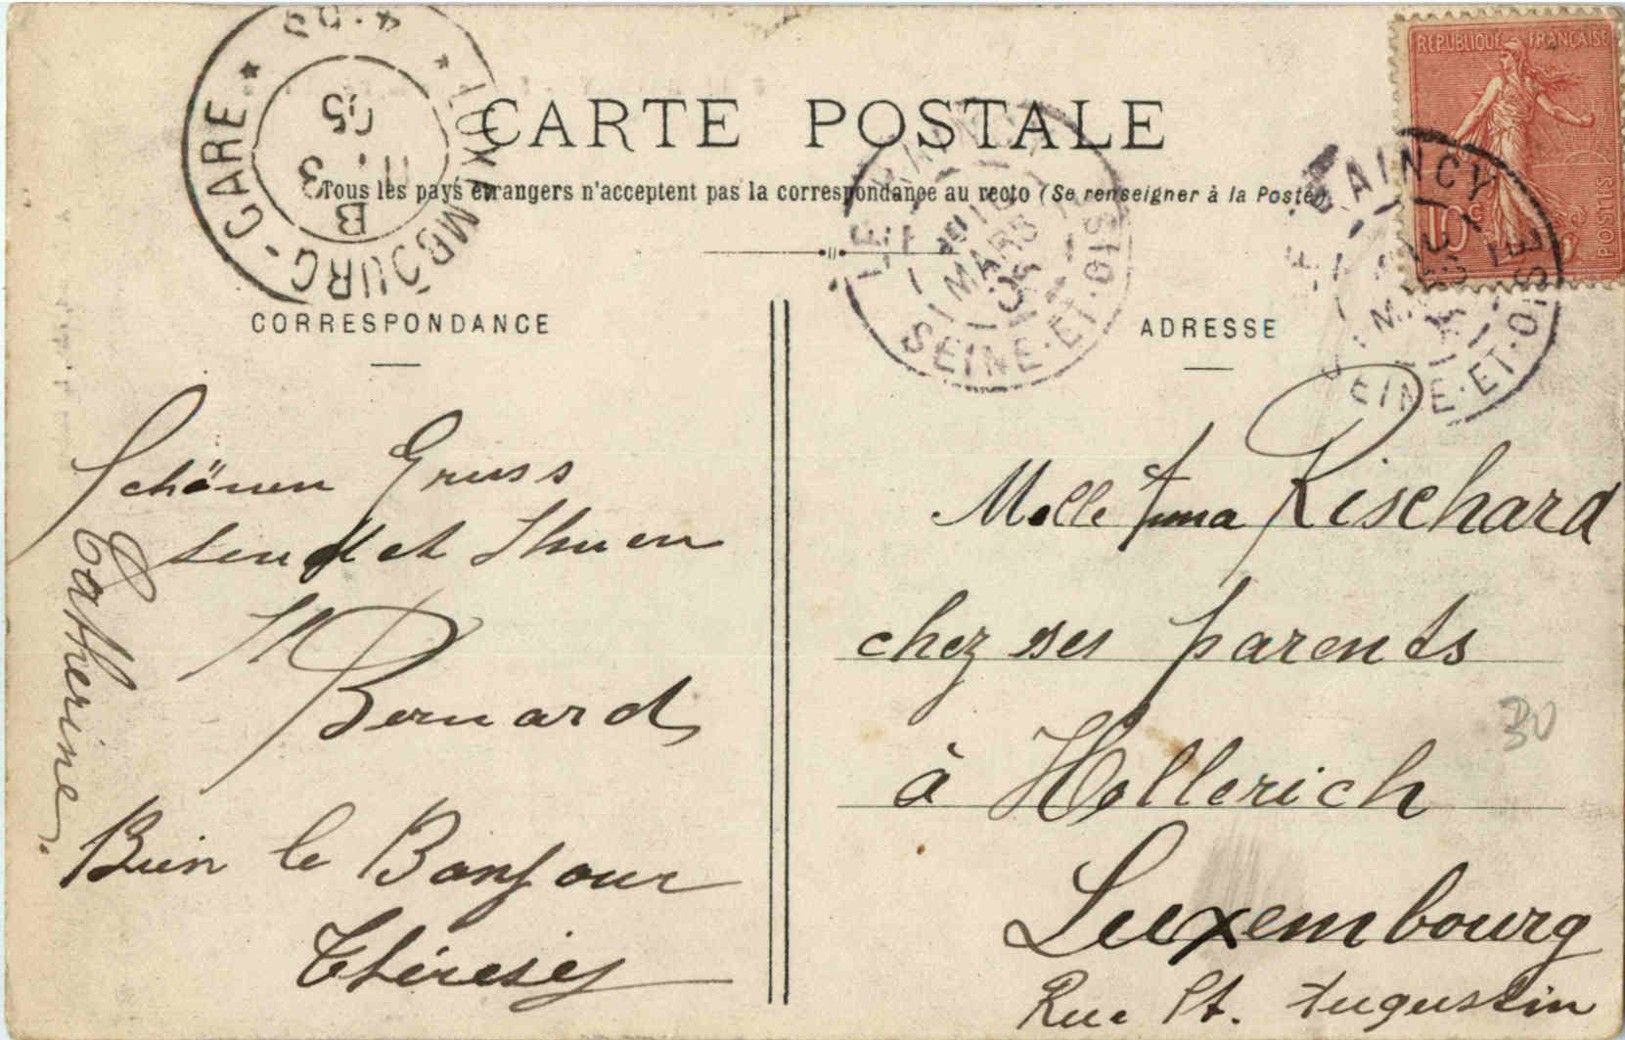 CARTE POSTALE
Tous les pays étrangers n'acceptent pas la correspondance au recto (Se renseigner à la Poste)
RÉPUBLIQUE FRANÇAISE
10c
POSTES
LUXEMBOURG-GARE
11.3
05
B
LE RAINCY
MARS
05
SEINE-ET-OISE
RAINCY
SEINE-ET-OISE
CORRESPONDANCE
Schönen Gruss
sendet Ihnen
Bernard
Bien le Bonjour
Thérèse
Catherine.
ADRESSE
Melle Anna Rischard
chez ses parents
à Hollerich
Luxembourg
Rue St. Augustin
30